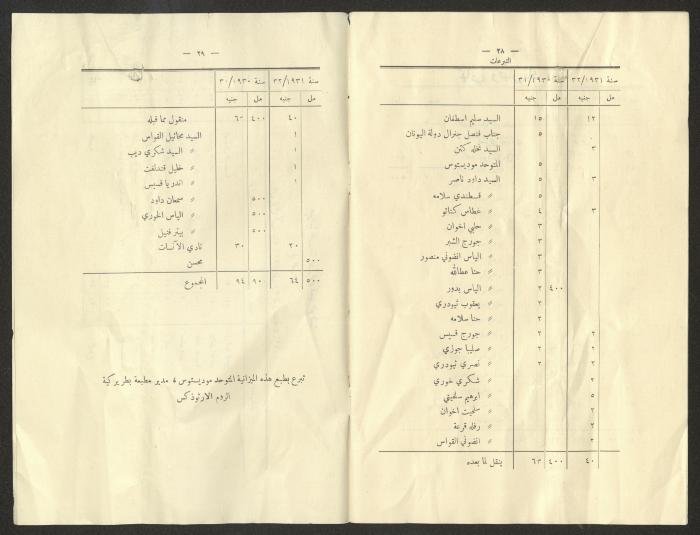 — ٢٨ —
التبرعات
سنة ١٩٣١/٣٢ سنة ١٩٣٠/٣١
مل جنيه مل جنيه
١٢ ١٥ السيد سليم اسطفان
٥ جناب قنصل جنرال دولة اليونان
٣ السيد نخله كتن
٥ المتوحد موديستوس
٣ ٥ السيد داود ناصر
٥ » قسطندي سلامه
٣ ٤ » عطاس كناتو
٣ » حلبي اخوان
٣ » جورج الشبر
٣ » الياس انضوني منصور
٣ » حنا عطالله
٤٠٠ ٢ » الياس بدور
٢ » يعقوب ثيودري
٢ » حنا سلامه
٢ ٢ » جورج قسيس
٢ ٢ » صليبا جوزي
٢ ٢ » نصري ثيودري
٢ » شكري خوري
٥ » ابرهيم سلفيتي
٢ » سلفيت اخوان
٢ » رفله قرعة
٢ » انضوني القواس
٤٠ ٤٠٠ ٦٣ ينقل لما بعده
— ٢٩ —
سنة ١٩٣١/٣٢ سنة ١٩٣٠/٣٠
مل جنيه مل جنيه
٤٠ ٤٠٠ ٦٣ منقول مما قبله
١ السيد مخائيل القواس
١ » السيد شكري ديب
١ » خليل قندلفت
١ » اندريا قسيس
٥٠٠ » سمعان داود
٥٠٠ » الياس الخوري
٥٠٠ » بيتر فتيل
٢٠ ٣٠ نادي الآنسات
٥٠٠ محسن
٥٠٠ ٦٤ ٩٠ ٩٤ المجموع
تبرع بطبع هذه الميزانية المتوحد موديستوس مدير مطبعة بطريركية
الروم الارثوذكس